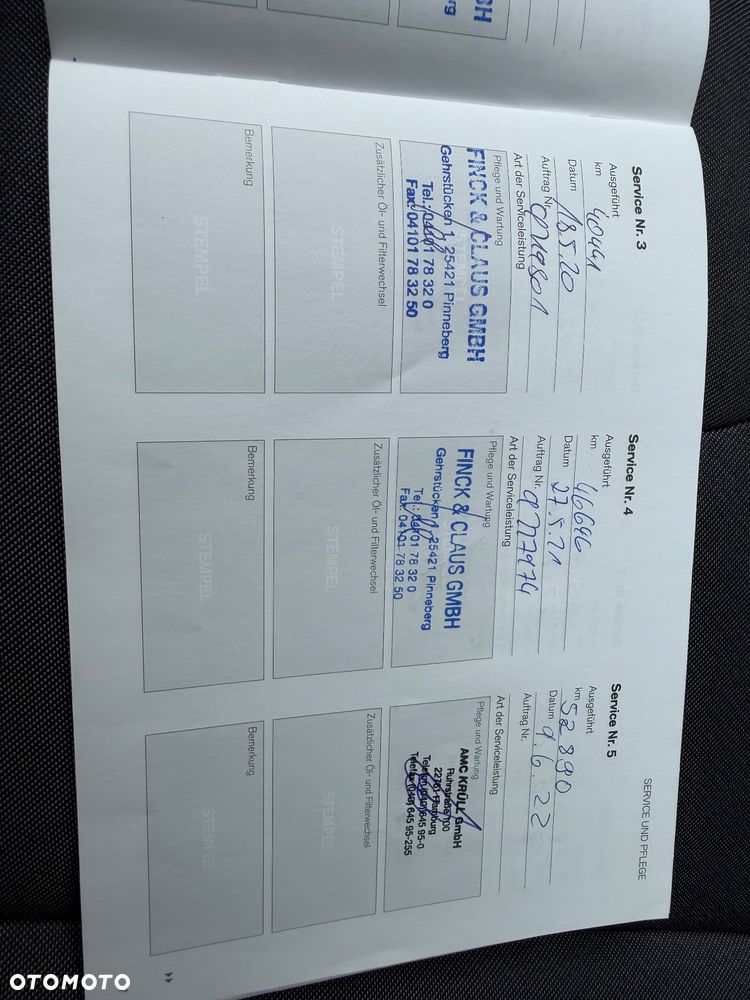 BH
rg
SERVICE UND PFLEGE
Service Nr. 3
Ausgeführt
km 40441
Datum 18.5.20
Auftrag Nr.
Art der Serviceleistung
Pflege und Wartung
FINCK & CLAUS GMBH
Gehrstücken 1, 25421 Pinneberg
Tel.: 04101 78 32 0
Fax: 04101 78 32 50
Zusätzlicher Öl- und Filterwechsel
STEMPEL
Bemerkung
STEMPEL
Service Nr. 4
Ausgeführt
km 46646
Datum 27.5.21
Auftrag Nr.
Art der Serviceleistung
Pflege und Wartung
FINCK & CLAUS GMBH
Gehrstücken 1, 25421 Pinneberg
Tel.: 04101 78 32 0
Fax: 04101 78 32 50
Zusätzlicher Öl- und Filterwechsel
STEMPEL
Bemerkung
STEMPEL
Service Nr. 5
Ausgeführt
km 52890
Datum 9.6.22
Auftrag Nr.
Art der Serviceleistung
Pflege und Wartung
AMC KRÜLL GmbH
Hamburg
Telefon (040) 645 95-0
Telefax (040) 645 95-255
Zusätzlicher Öl- und Filterwechsel
STEMPEL
Bemerkung
STEMPEL
OTOMOTO